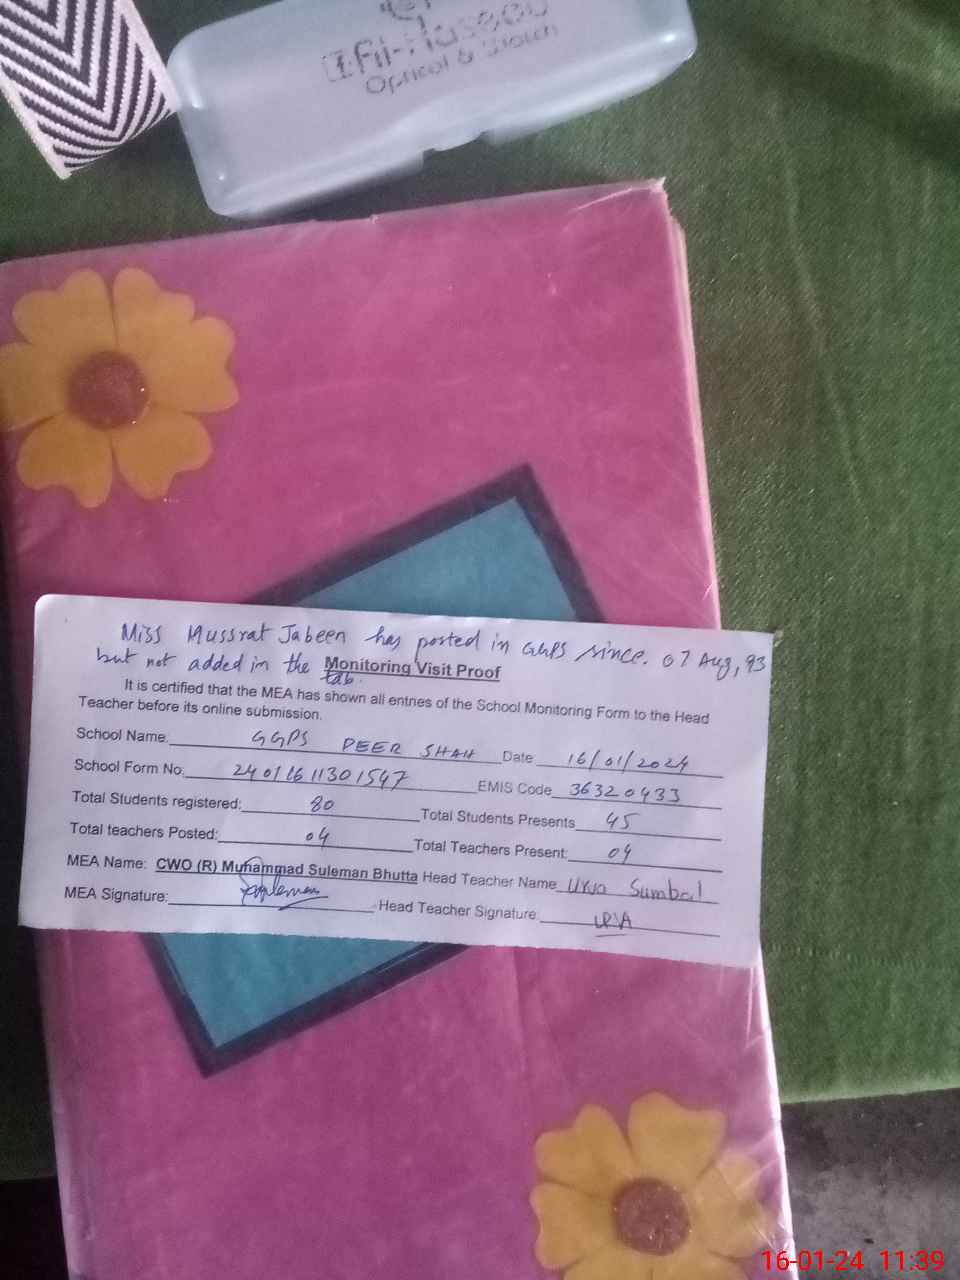 Optical & Watch
Miss Mussrat Jabeen has posted in GGPS since. 07 Aug, 93
but not added in the tab.
Monitoring Visit Proof
It is certified that the MEA has shown all entries of the School Monitoring Form to the Head
Teacher before its online submission.
School Name: GGPS PEER SHAH Date 16/01/2024
School Form No: 24011611301547 EMIS Code 36320433
Total Students registered: 80 Total Students Presents 45
Total teachers Posted: 04 Total Teachers Present: 04
MEA Name: CWO (R) Muhammad Suleman Bhutta Head Teacher Name Urwa Sumbal
MEA Signature: Head Teacher Signature:
16-01-24 11:39